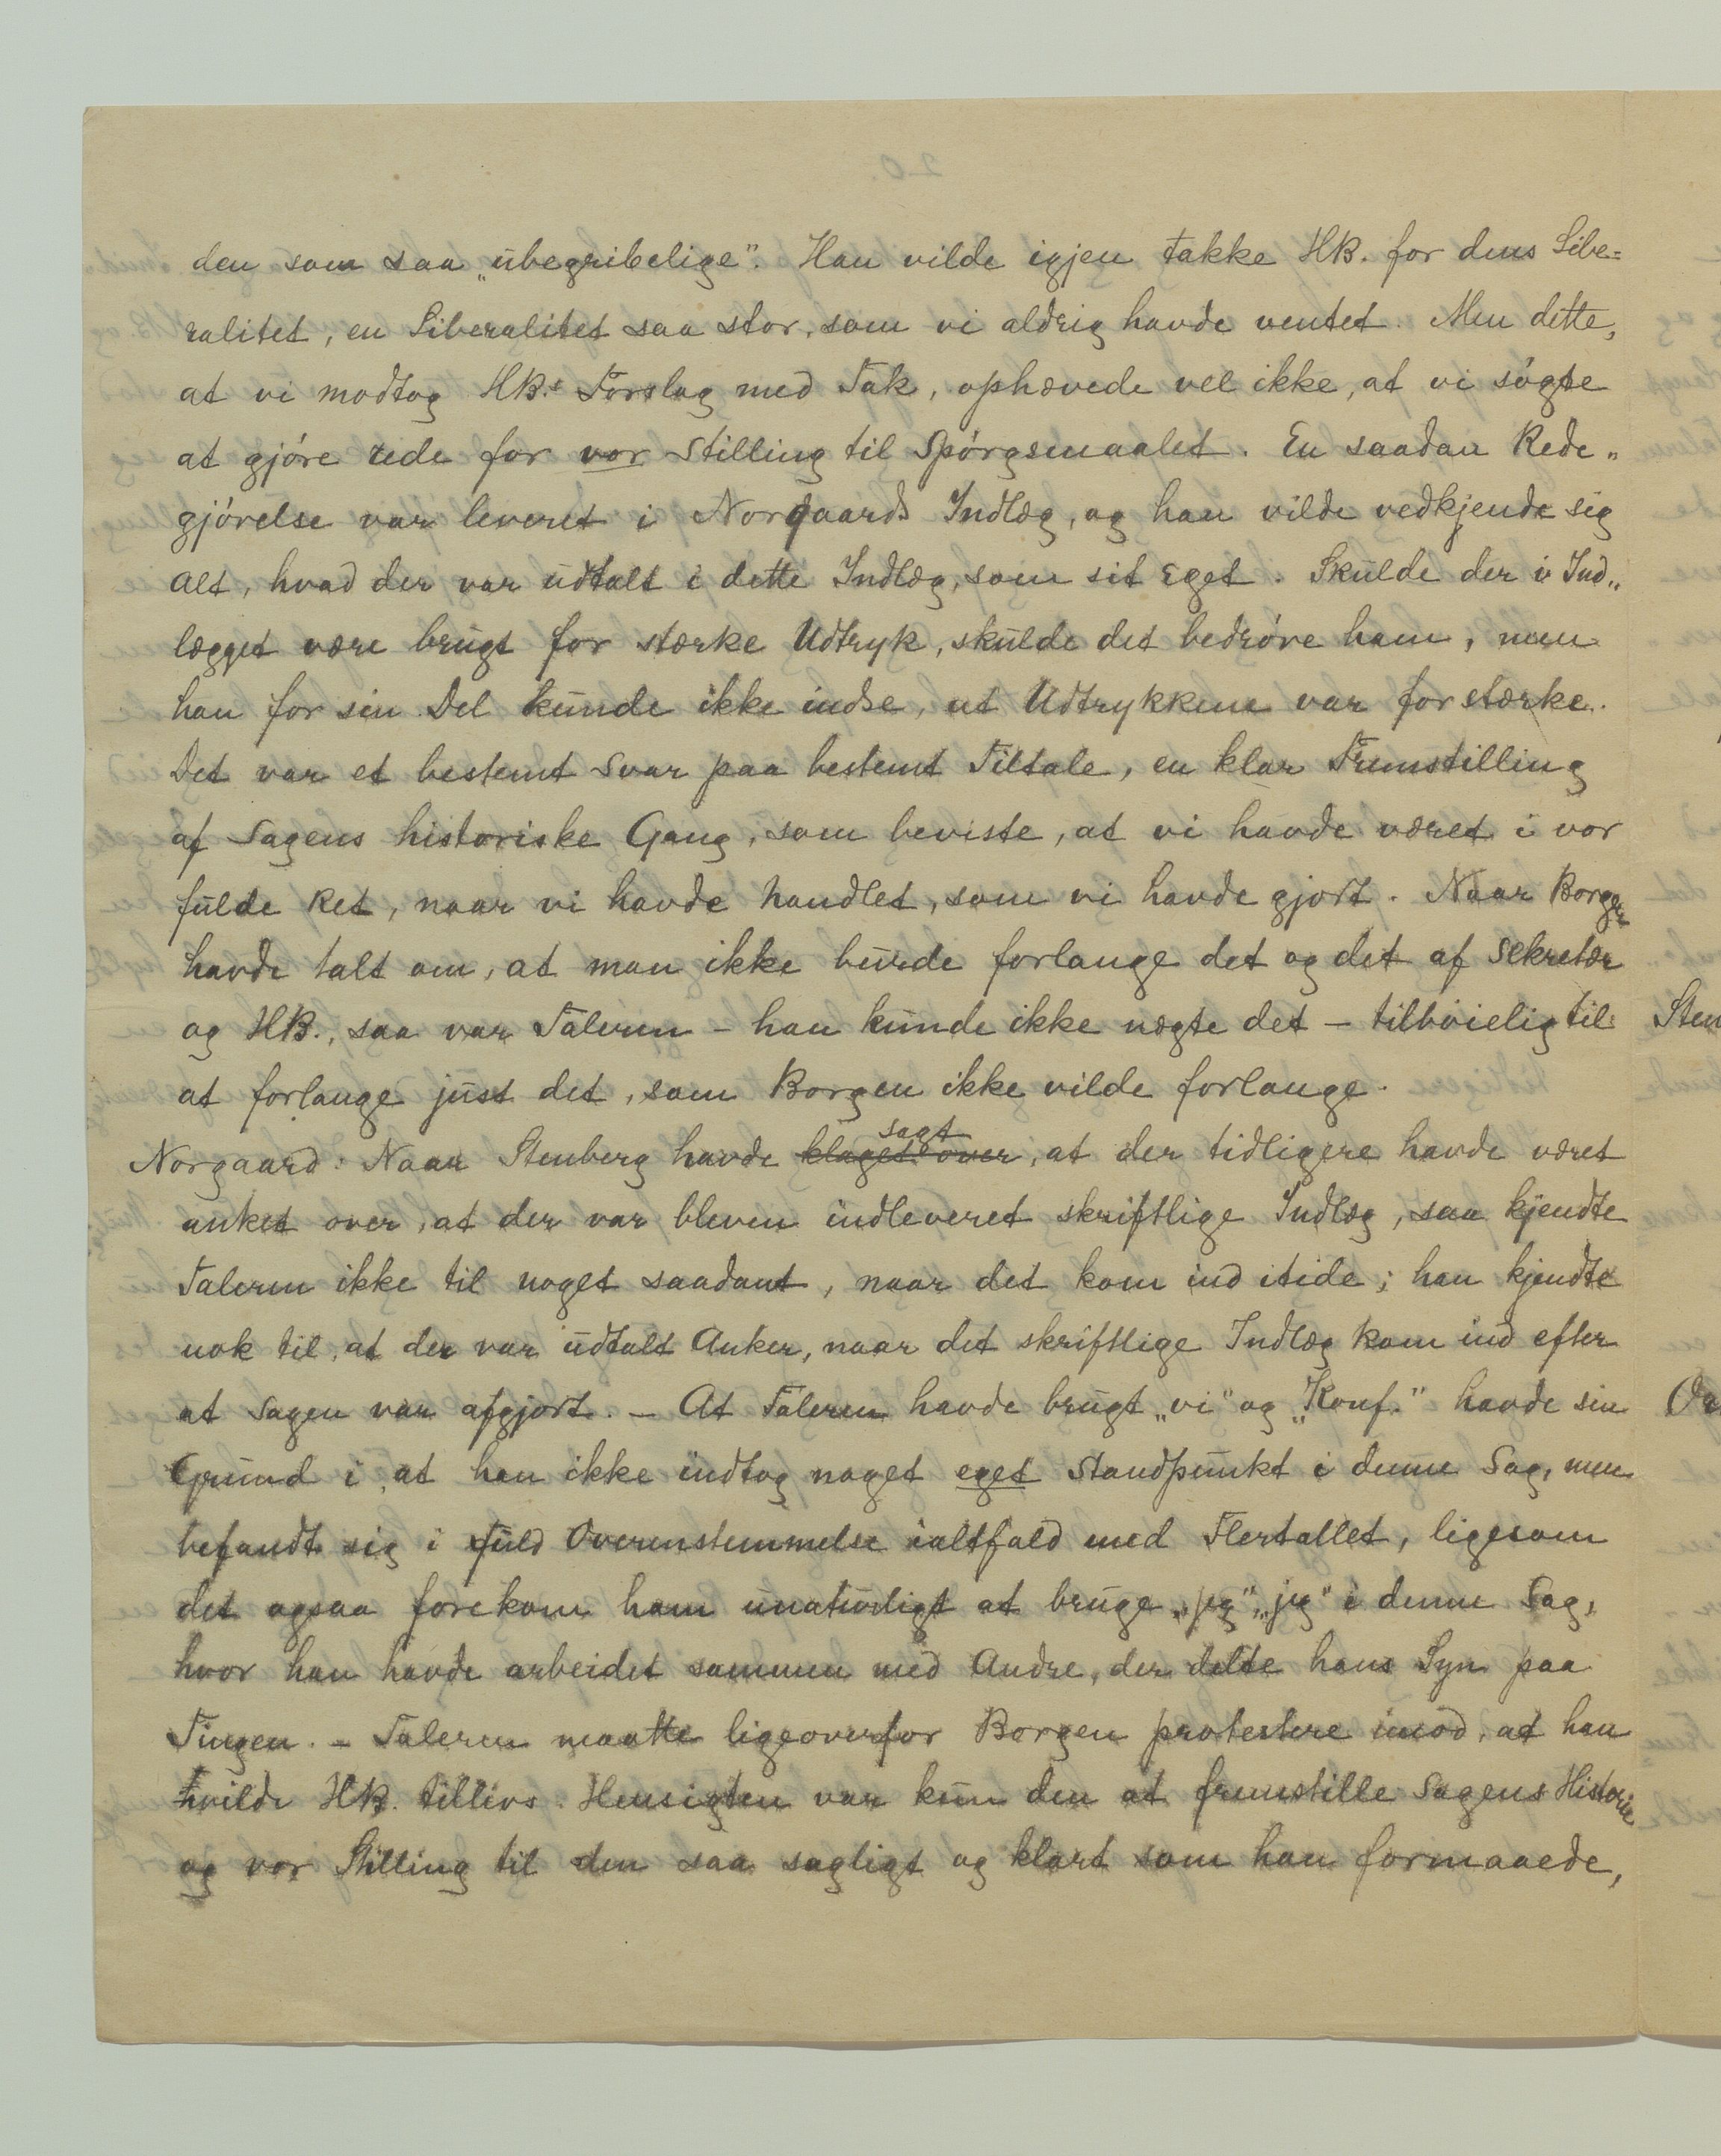 den som saa „ubegribelige". Han vilde igjen takke HB. for dens Libe=
ralitet, en Liberalitet saa stor, som vi aldrig havde ventet. Men dette,
at vi modtog HB.s Forslag med Tak, ophævede vel ikke, at vi søgte
at gjøre rede for vor Stilling til Spørgsmaalet. En saadan Rede„
gjørelse var leveret i Norgaards Indlæg, og han vilde vedkjende sig
alt, hvad der var udtalt i dette Indlæg, som sit Eget. Skulde der i Ind„
lægget være brugt for stærke Udtryk, skulde det bedrøve ham, men
han for sin Del kunde ikke indse, at Udtrykkene var for stærke.
Det var et bestemt Svar paa bestemt Tiltale, en klar Fremstilling
af Sagens historiske Gang, som beviste, at vi havde været i vor
fulde Ret, naar vi havde handlet, som vi havde gjort. Naar Borgen
havde talt om, at man ikke burde forlange det og det af Sekretær
og HB., saa var Taleren – han kunde ikke nægte det – tilbøielig til
at forlange just det, som Borgen ikke vilde forlange.
Norgaard: Naar Stenberg havde klaget over sagt, at der tidligere havde været
anket over, at der var bleven indleveret skriftlige Indlæg, saa kjendte
Taleren ikke til noget saadant, naar det kom ind itide; han kjendte
nok til, at der var udtalt Anker, naar det skriftlige Indlæg kom ind efter
at Sagen var afgjort. – At Taleren havde brugt „vi" og „Konf." havde sin
Grund i, at han ikke indtog noget eget Standpunkt i denne Sag, men
befandt sig i fuld Overenstemmelse ialtfald med Flertallet, ligesom
det ogsaa forekom ham unaturligt at bruge „jeg" „jeg" i denne Sag,
hvor han havde arbeidet sammen med Andre, der delte hans Syn paa
Tingen. – Taleren maatte ligeoverfor Borgen protestere imod, at han
vilde HB. tillivs. Hensigten var kun den at fremstille Sagens Historie
og vor Stilling til den saa sagligt og klart som han formaaede,
Sten